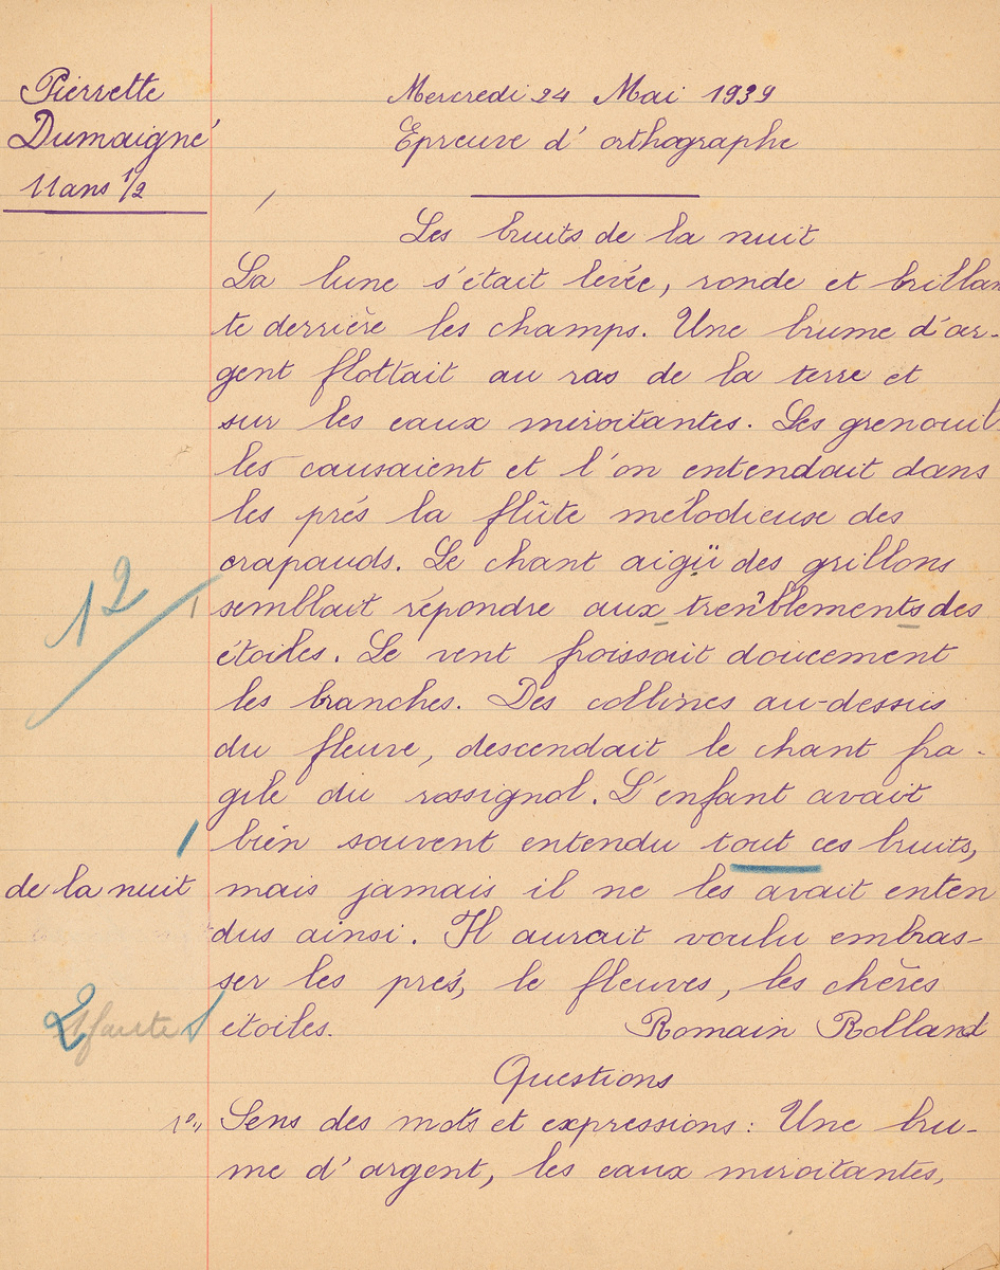 Pierrette
Dumaigné
11 ans 1/2
Mercredi 24 Mai 1939
Epreuve d'orthographe
Les bruits de la nuit
La lune s'était levée, ronde et brillan
te derrière les champs. Une brume d'ar-
gent flottait au ras de la terre et
sur les eaux miroitantes. Les grenouil
les causaient et l'on entendait dans
les prés la flûte mélodieuse des
crapauds. Le chant aigü des grillons
1 semblait répondre aux tremblements des
étoiles. Le vent froissait doucement
12
les branches. Des collines au-dessus
du fleuve, descendait le chant fra-
gile du rossignol. L'enfant avait
1 bien souvent entendu tout ces bruits,
de la nuit mais jamais il ne les avait enten
dus ainsi. Il aurait voulu embras-
ser les prés, le fleuves, les chères
2 faute étoiles. Romain Rolland
Questions
1º,, Sens des mots et expressions : Une bru-
me d'argent, les eaux miroitantes,